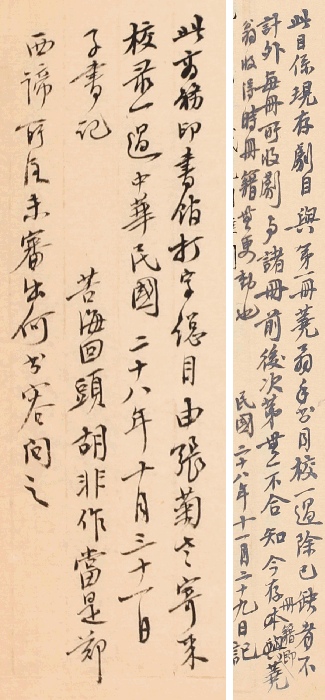 此商務印書館打字總目由張菊老寄來
校录一過中華民國二十八年十月三十一日
子書記
苦海回頭胡非作當是鄭
西諦所定未審出何书容問之
此目係現存劇目與第一冊蕘翁手书目校一過除已缺者不
計外每冊所收劇与諸冊前後次第無一不合知今存本冊籍即蕘
翁收得時冊籍無更動也
民國二十八年十一月二十九日記